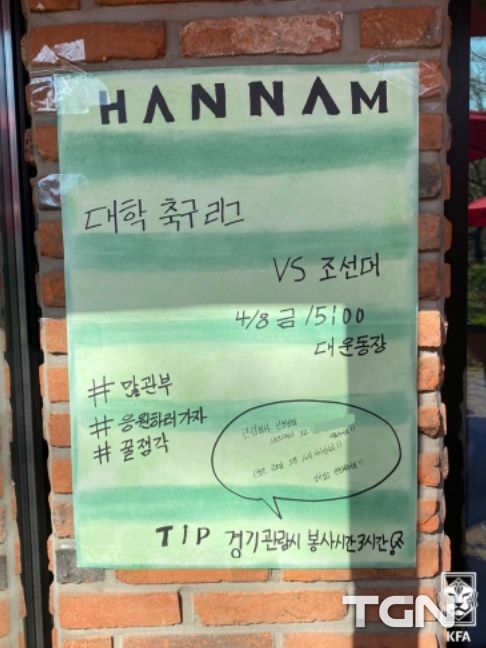 HANNAM
대학 축구 리그
VS 조선대
4/8 금 15:00
대운동장
# 많관부
# 응원하러가자
# 꿀잼각
TIP 경기관람시 봉사시간 3시간
TGN
KFA